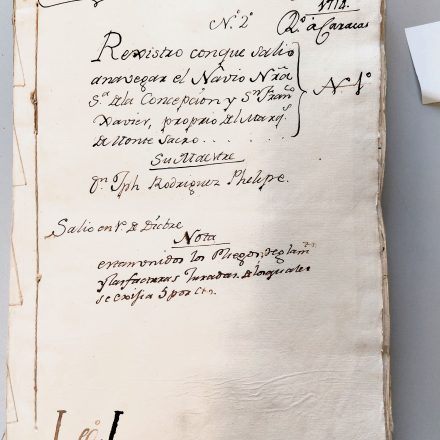 1714.
N.º 2º
R.º à Caracas
Rexistro conque salio
anavegar el Navio Nrã
S.ª de la Concepcion y S.n Fran.co
Xavier, proprio del Marq.s
de Monte Sacro . . . . . .
N 1º
Su Maestre
Dn. Jph Rodriguez Phelipe.
Salio en 1.º de Diz.bre
Nota
estan unidos los Pliegos
y las facturas Juradas de los quales
se exisia 5 por